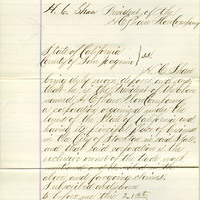 H. C. Shaw President of the
H. C. Shaw Plow Company
State of California
County of San Joaquin } SS
H. C. Shaw
being duly sworn deposes and says
that he is the President of the above
named H C Shaw Plow Company
a corporation organized under the
laws of the State of California and
having its principal place of business
in the City of Stockton in said State,
and that said corporation is the
exclusive owner of the
above and foregoing claims.
Subscribed and sworn
to before me this